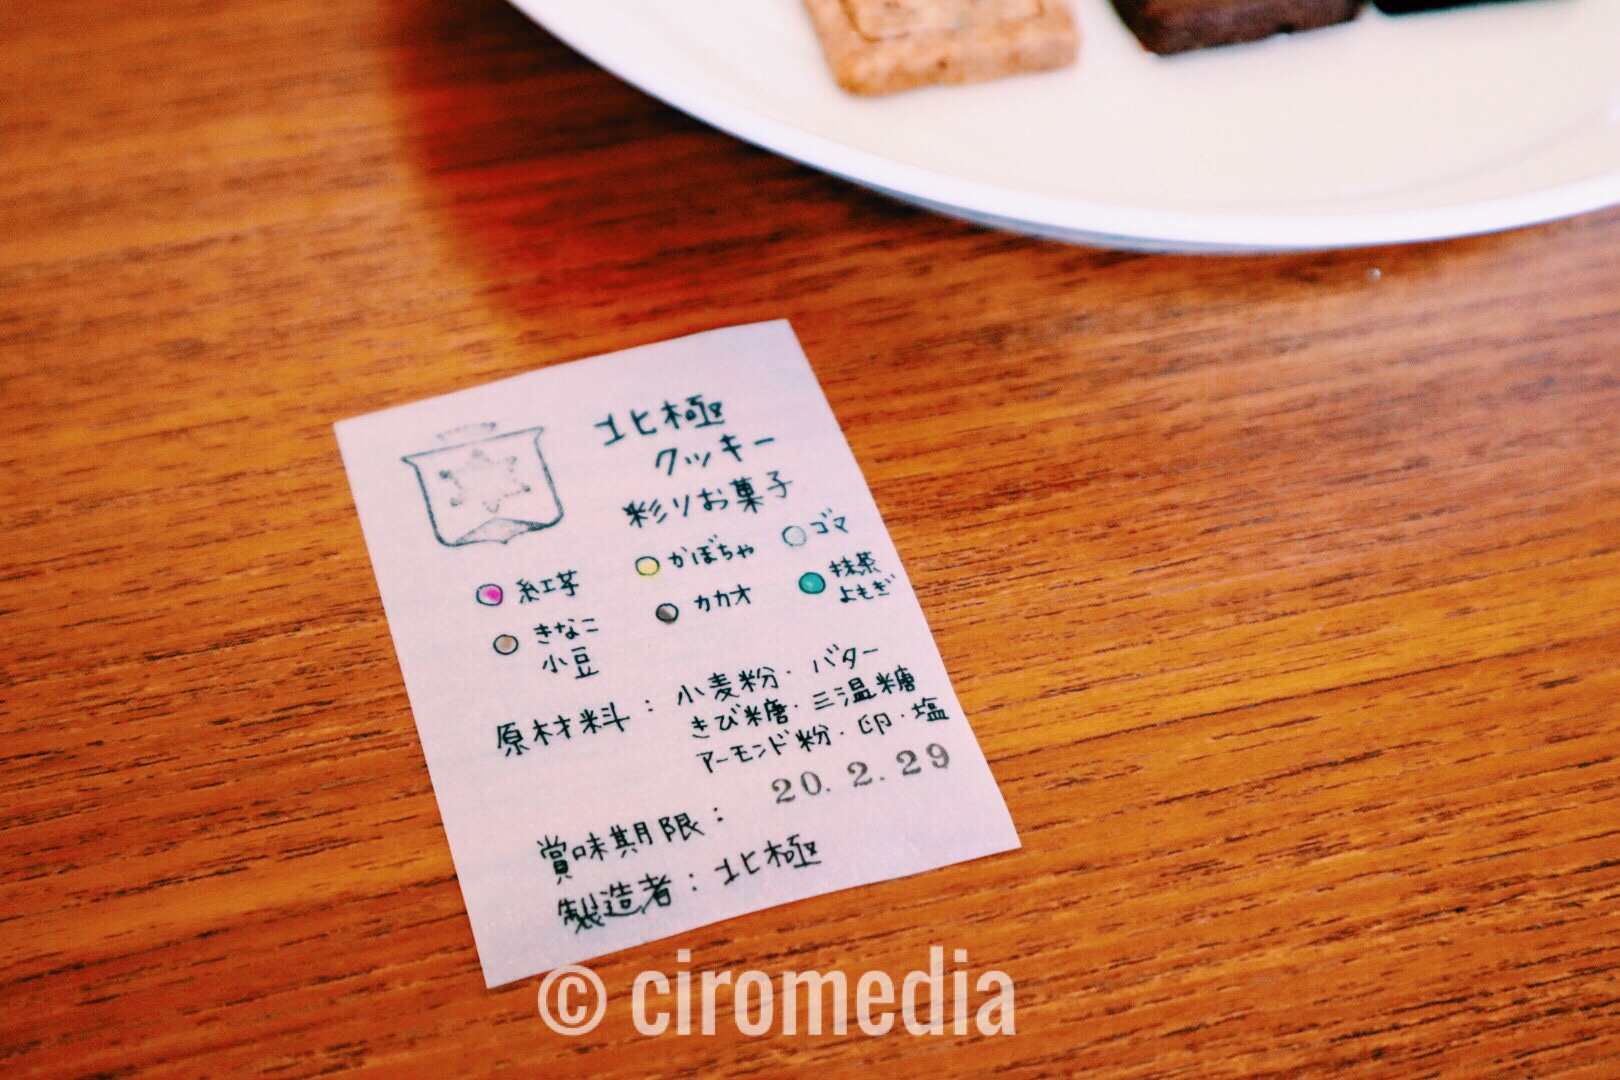 北極
クッキー
彩りお菓子
紅芋 かぼちゃ ゴマ
きなこ カカオ 抹茶
小豆 よもぎ
原材料：小麦粉・バター
きび糖・三温糖
アーモンド粉・卵・塩
20. 2. 29
賞味期限：
製造者：北極
© ciromedia